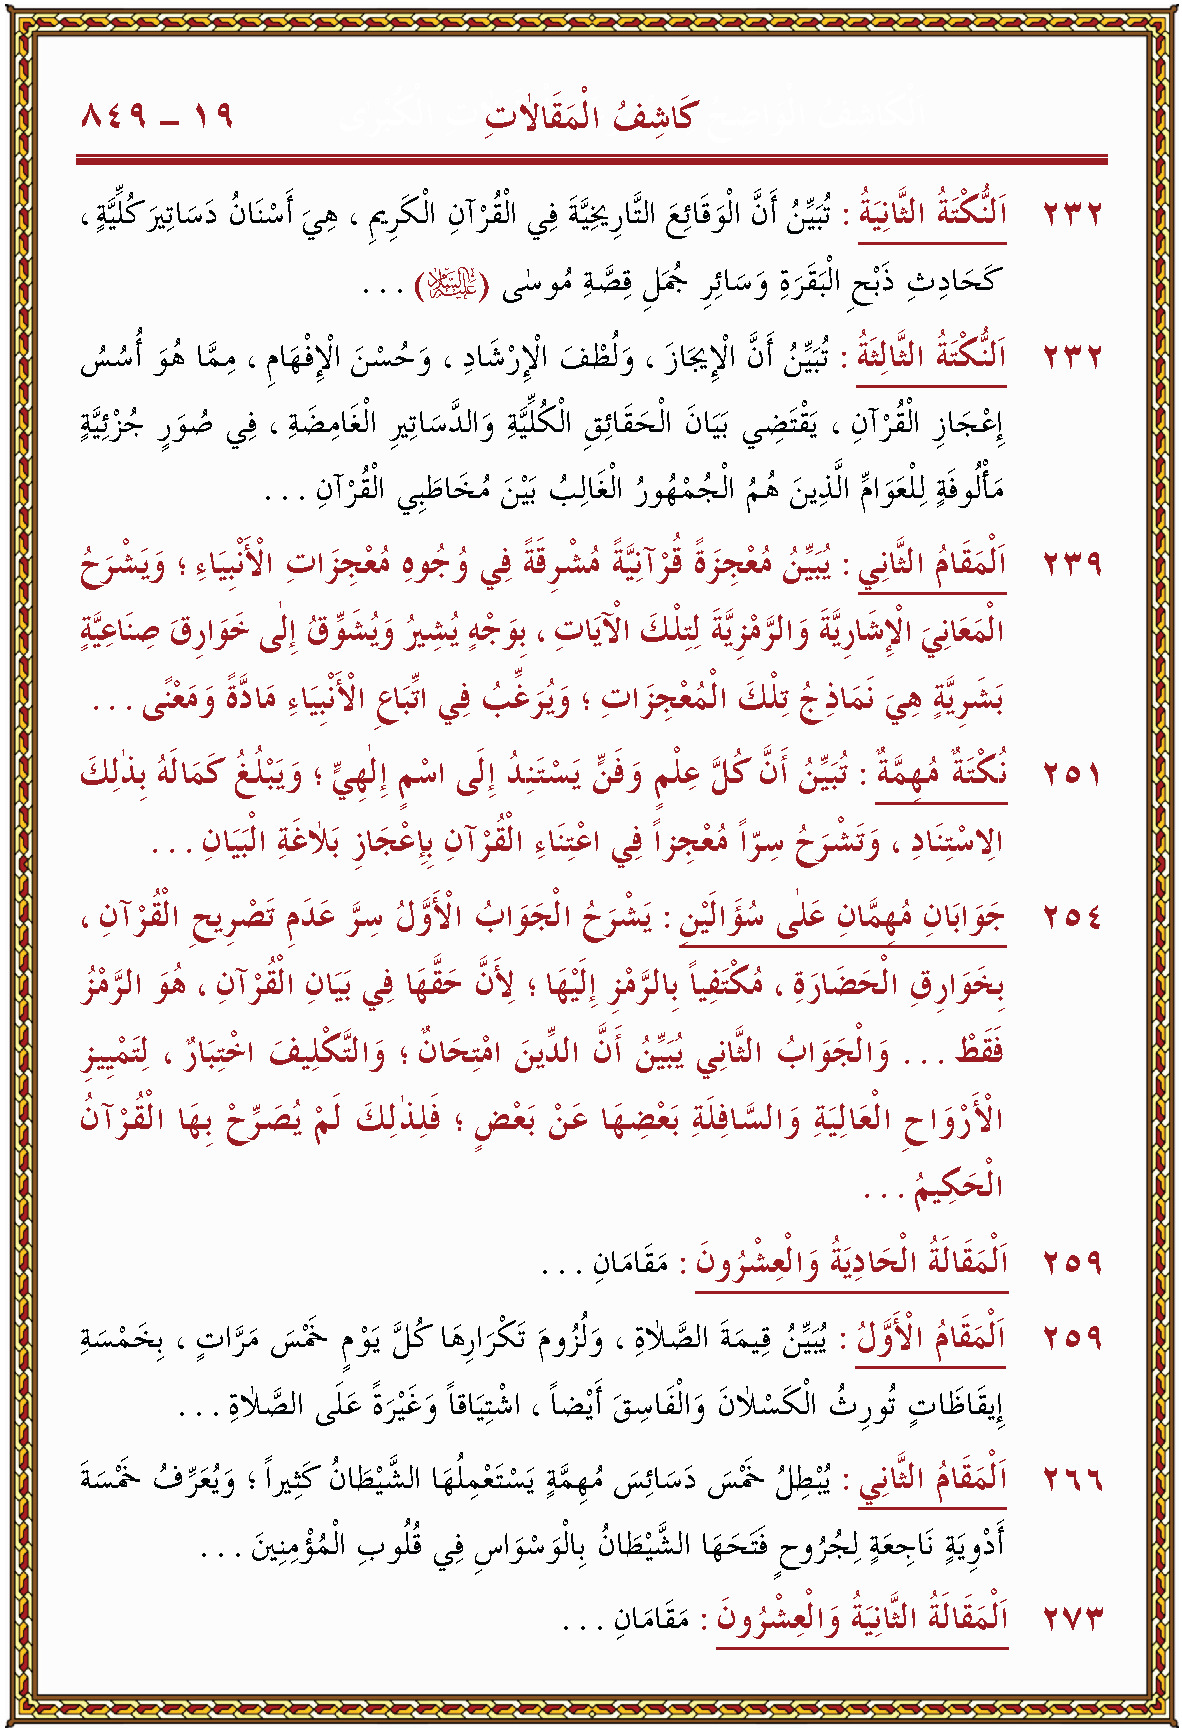 كَاشِفُ الْمَقَالَاتِ ١٩ – ٨٤٩
٢٣٢ اَلنُّكْتَةُ الثَّانِيَةُ : تُبَيِّنُ أَنَّ الْوَقَائِعَ التَّارِيخِيَّةَ فِي الْقُرْآنِ الْكَرِيمِ ، هِيَ أَسْنَانُ دَسَاتِيرَ كُلِّيَّةٍ ،
كَحَادِثِ ذَبْحِ الْبَقَرَةِ وَسَائِرِ جُمَلِ قِصَّةِ مُوسٰى (عَلَيْهِ السَّلَامُ) . . .
٢٣٢ اَلنُّكْتَةُ الثَّالِثَةُ : تُبَيِّنُ أَنَّ الْإِيجَازَ ، وَلُطْفَ الْإِرْشَادِ ، وَحُسْنَ الْإِفْهَامِ ، مِمَّا هُوَ أُسُسُ
إِعْجَازِ الْقُرْآنِ ، يَقْتَضِي بَيَانَ الْحَقَائِقِ الْكُلِّيَّةِ وَالدَّسَاتِيرِ الْغَامِضَةِ ، فِي صُوَرٍ جُزْئِيَّةٍ
مَأْلُوفَةٍ لِلْعَوَامِّ الَّذِينَ هُمُ الْجُمْهُورُ الْغَالِبُ بَيْنَ مُخَاطَبِي الْقُرْآنِ . . .
٢٣٩ اَلْمَقَامُ الثَّانِي : يُبَيِّنُ مُعْجِزَةً قُرْآنِيَّةً مُشْرِقَةً فِي وُجُوهِ مُعْجِزَاتِ الْأَنْبِيَاءِ ؛ وَيَشْرَحُ
الْمَعَانِيَ الْإِشَارِيَّةَ وَالرَّمْزِيَّةَ لِتِلْكَ الْآيَاتِ ، بِوَجْهٍ يُشِيرُ وَيُشَوِّقُ إِلٰى خَوَارِقَ صِنَاعِيَّةٍ
بَشَرِيَّةٍ هِيَ نَمَاذِجُ تِلْكَ الْمُعْجِزَاتِ ؛ وَيُرَغِّبُ فِي اتِّبَاعِ الْأَنْبِيَاءِ مَادَّةً وَمَعْنًى . . .
٢٥١ نُكْتَةٌ مُهِمَّةٌ : تُبَيِّنُ أَنَّ كُلَّ عِلْمٍ وَفَنٍّ يَسْتَنِدُ إِلَى اسْمٍ إِلٰهِيٍّ ؛ وَيَبْلُغُ كَمَالَهُ بِذٰلِكَ
الِاسْتِنَادِ ، وَتَشْرَحُ سِرّاً مُعْجِزاً فِي اعْتِنَاءِ الْقُرْآنِ بِإِعْجَازِ بَلَاغَةِ الْبَيَانِ . . .
٢٥٤ جَوَابَانِ مُهِمَّانِ عَلٰى سُؤَالَيْنِ : يَشْرَحُ الْجَوَابُ الْأَوَّلُ سِرَّ عَدَمِ تَصْرِيحِ الْقُرْآنِ ،
بِخَوَارِقِ الْحَضَارَةِ ، مُكْتَفِياً بِالرَّمْزِ إِلَيْهَا ؛ لِأَنَّ حَقَّهَا فِي بَيَانِ الْقُرْآنِ ، هُوَ الرَّمْزُ
فَقَطْ . . . وَالْجَوَابُ الثَّانِي يُبَيِّنُ أَنَّ الدِّينَ امْتِحَانٌ ؛ وَالتَّكْلِيفَ اخْتِبَارٌ ، لِتَمْيِيزِ
الْأَرْوَاحِ الْعَالِيَةِ وَالسَّافِلَةِ بَعْضِهَا عَنْ بَعْضٍ ؛ فَلِذٰلِكَ لَمْ يُصَرِّحْ بِهَا الْقُرْآنُ
الْحَكِيمُ . . .
٢٥٩ اَلْمَقَالَةُ الْحَادِيَةُ وَالْعِشْرُونَ : مَقَامَانِ . . .
٢٥٩ اَلْمَقَامُ الْأَوَّلُ : يُبَيِّنُ قِيمَةَ الصَّلَاةِ ، وَلُزُومَ تَكْرَارِهَا كُلَّ يَوْمٍ خَمْسَ مَرَّاتٍ ، بِخَمْسَةِ
إِيقَاظَاتٍ تُورِثُ الْكَسْلَانَ وَالْفَاسِقَ أَيْضاً ، اشْتِيَاقاً وَغَيْرَةً عَلَى الصَّلَاةِ . . .
٢٦٦ اَلْمَقَامُ الثَّانِي : يُبْطِلُ خَمْسَ دَسَائِسَ مُهِمَّةٍ يَسْتَعْمِلُهَا الشَّيْطَانُ كَثِيراً ؛ وَيُعَرِّفُ خَمْسَةَ
أَدْوِيَةٍ نَاجِعَةٍ لِجُرُوحٍ فَتَحَهَا الشَّيْطَانُ بِالْوَسْوَاسِ فِي قُلُوبِ الْمُؤْمِنِينَ . . .
٢٧٣ اَلْمَقَالَةُ الثَّانِيَةُ وَالْعِشْرُونَ : مَقَامَانِ . . .